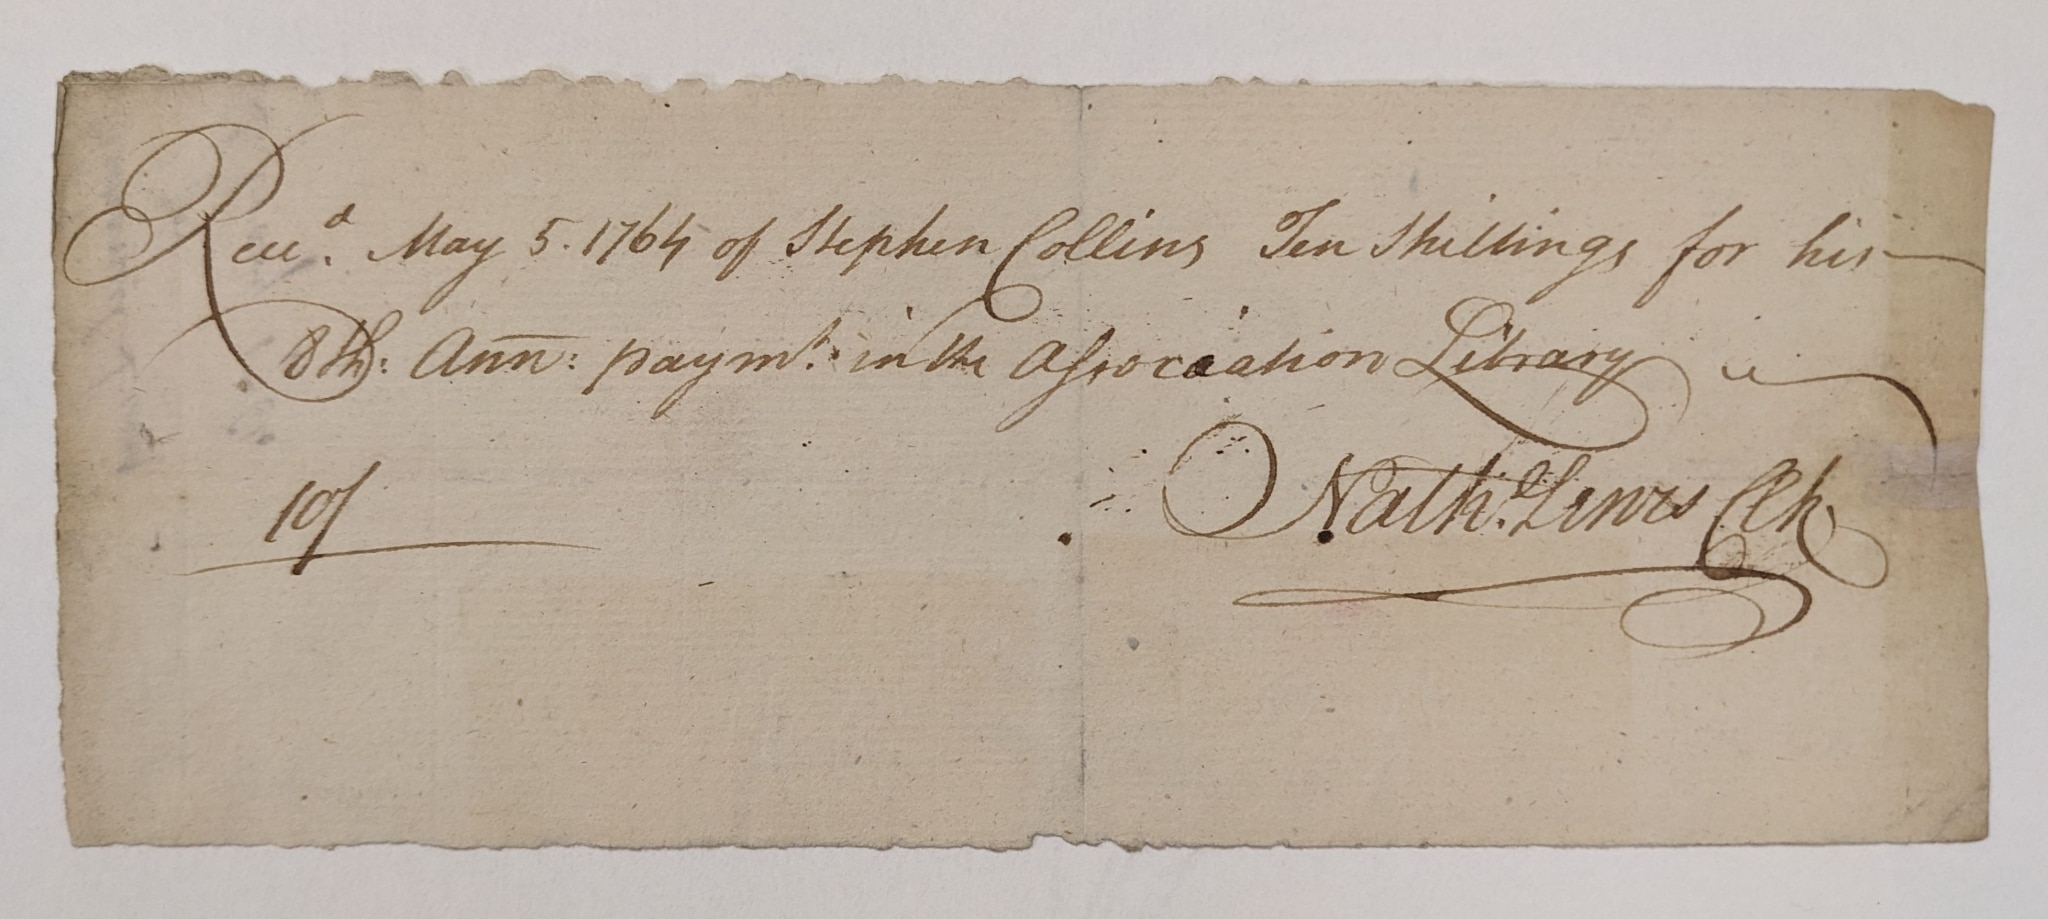 Rece.d May 5. 1764 of Stephen Collins Ten Shillings for his
8th: Ann: paym.t in the Association Library
10/ Nath.l Lewis Clk